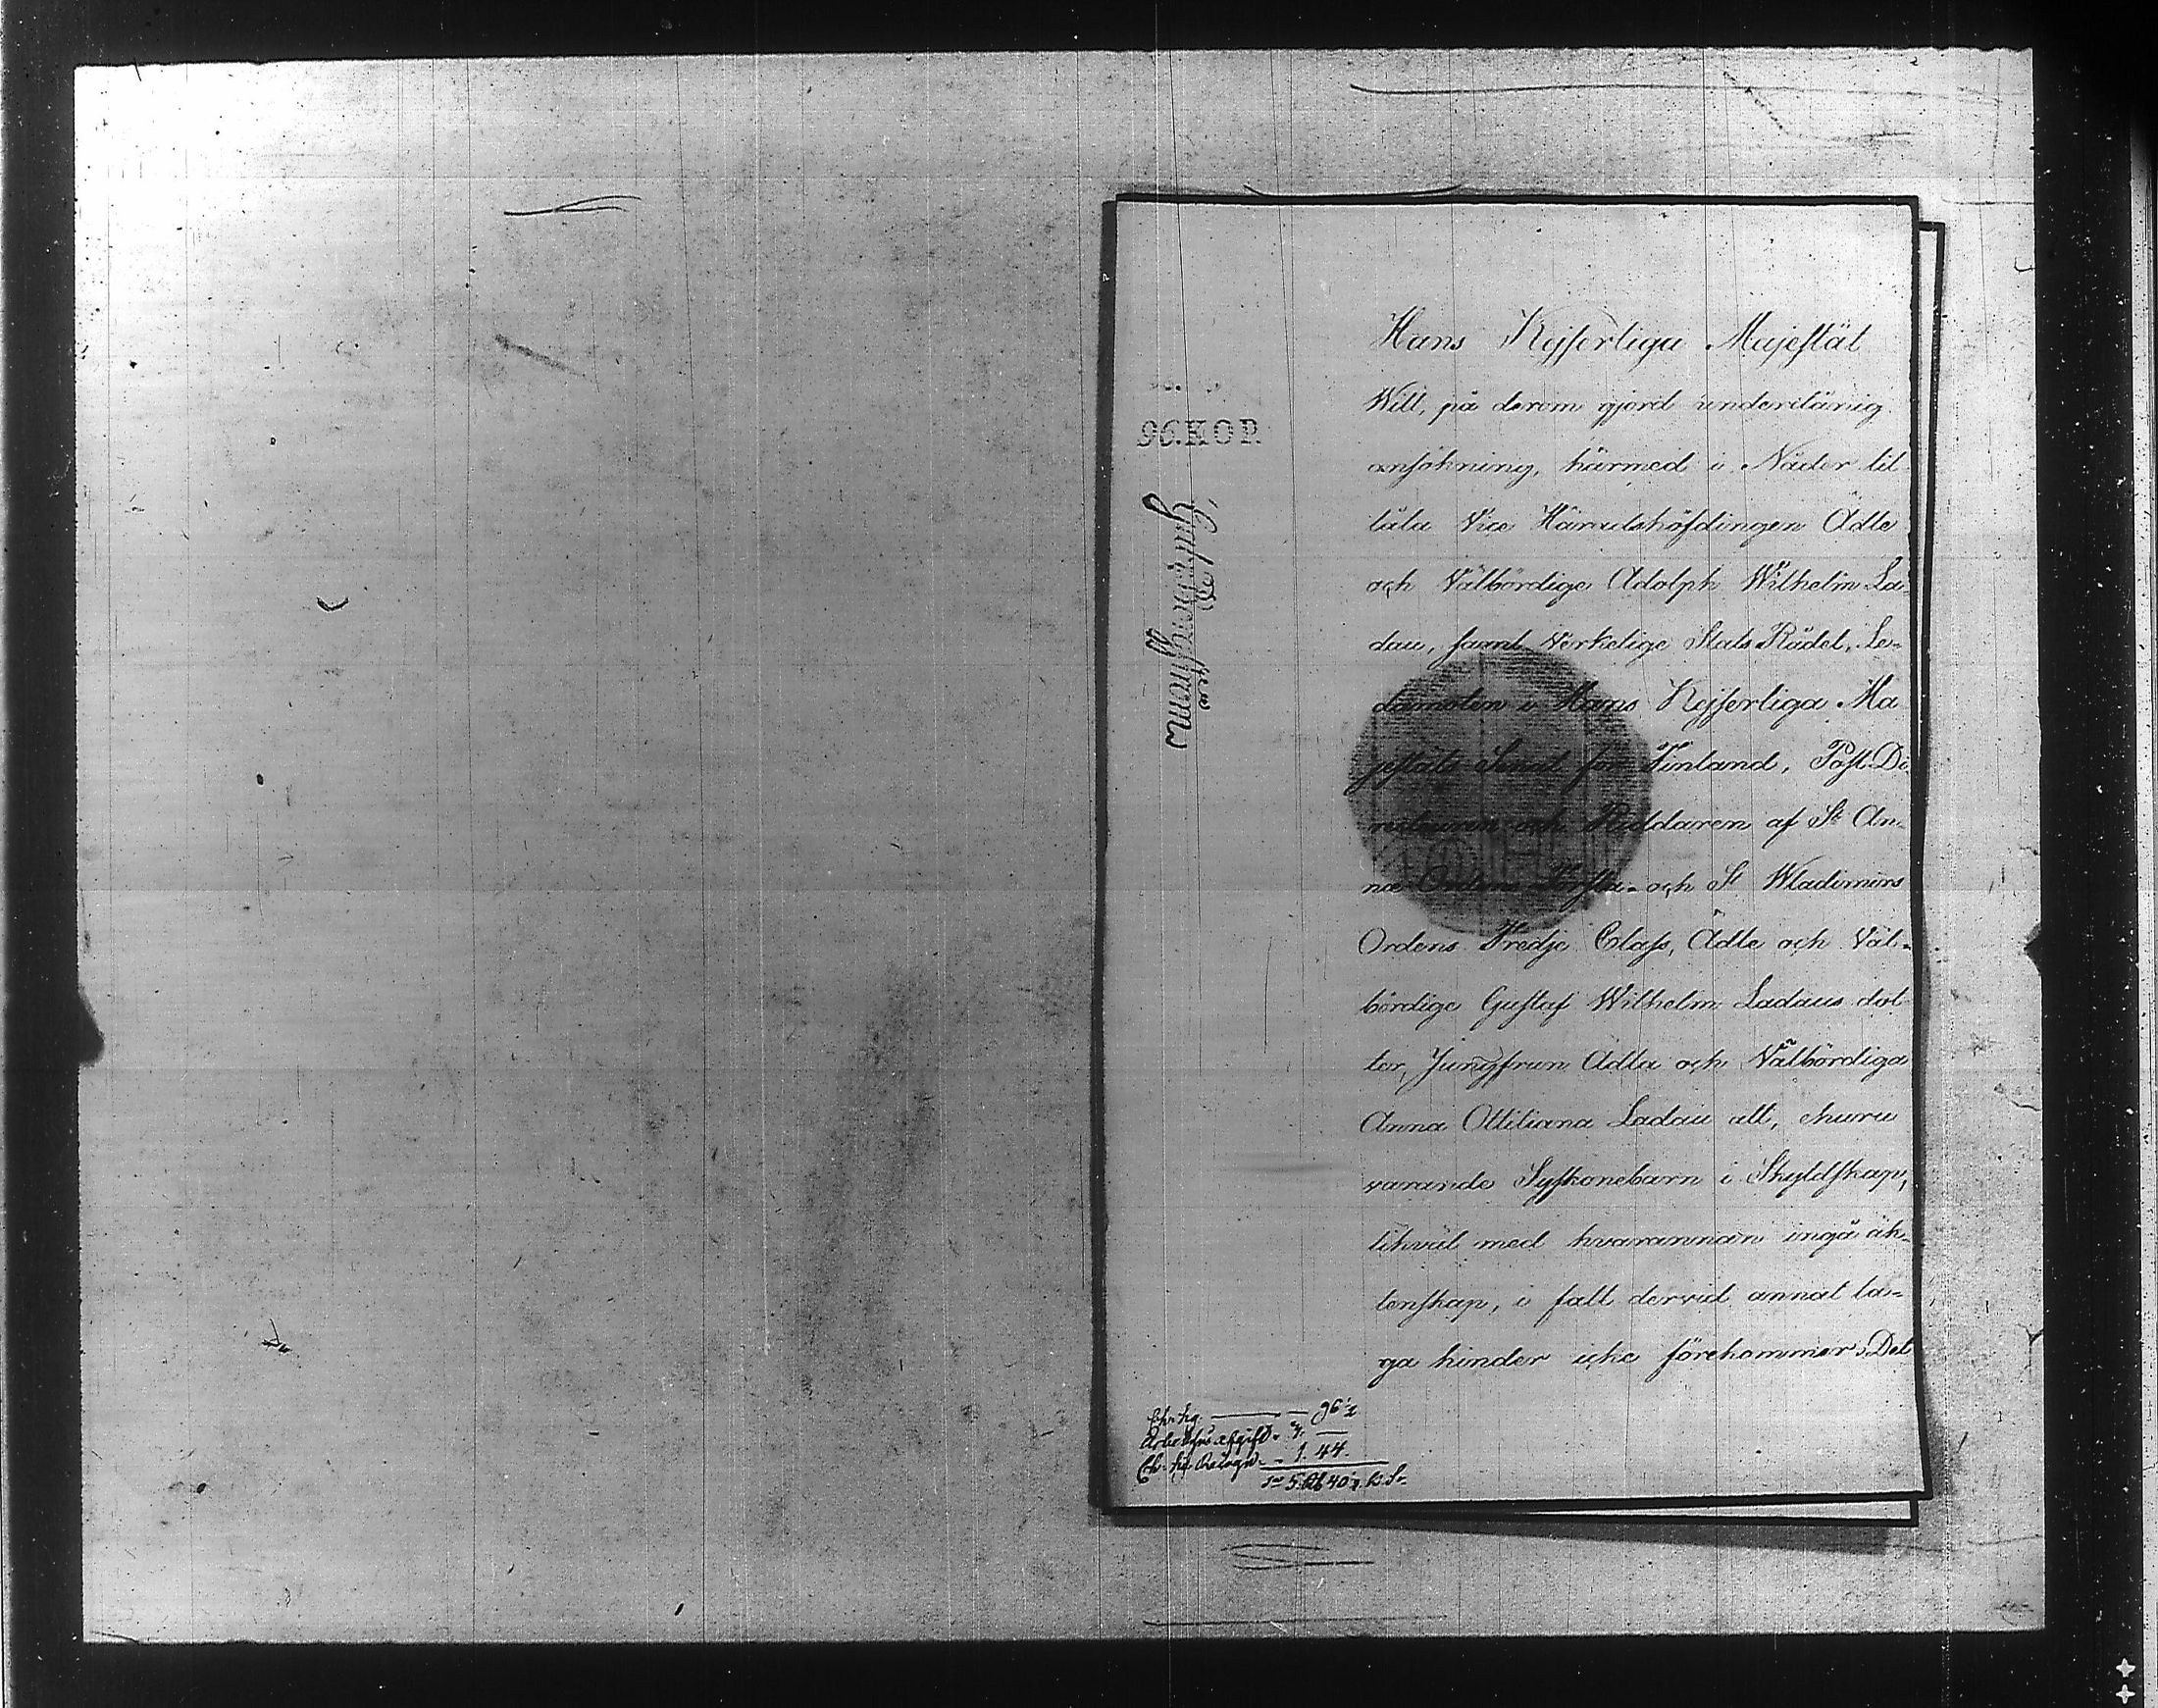 96. KOP.
Hans Kejserliga Majestät
Will, på derom gjord underdånig
ansökning, härmed i Nåder til
låta Vice Häradshöfdingen Ädle
och Välbördige Adolph Wilhelm La-
dau, samt Verkelige Stats Rådet, Le-
damoten i Hans Kejserliga Ma
jestäts Senat för Finland, Post-Di
recteuren och Riddaren af St An-
næ Ordens Första- och St Wladimirs
Ordens Tredje Class, Ädle och Väl-
bördige Gustaf Wilhelm Ladaus dot
ter, Jungfrun Ädla och Välbördiga
Anna Ottiliana Ladau att, ehuru
varande Syskonebarn i Skyldskap,
likväl med hvarannan ingå äk-
tenskap, i fall dervid annat la-
ga hinder icke förekommer; Det
Ch. Sig. — 96
afgift
1. 44.